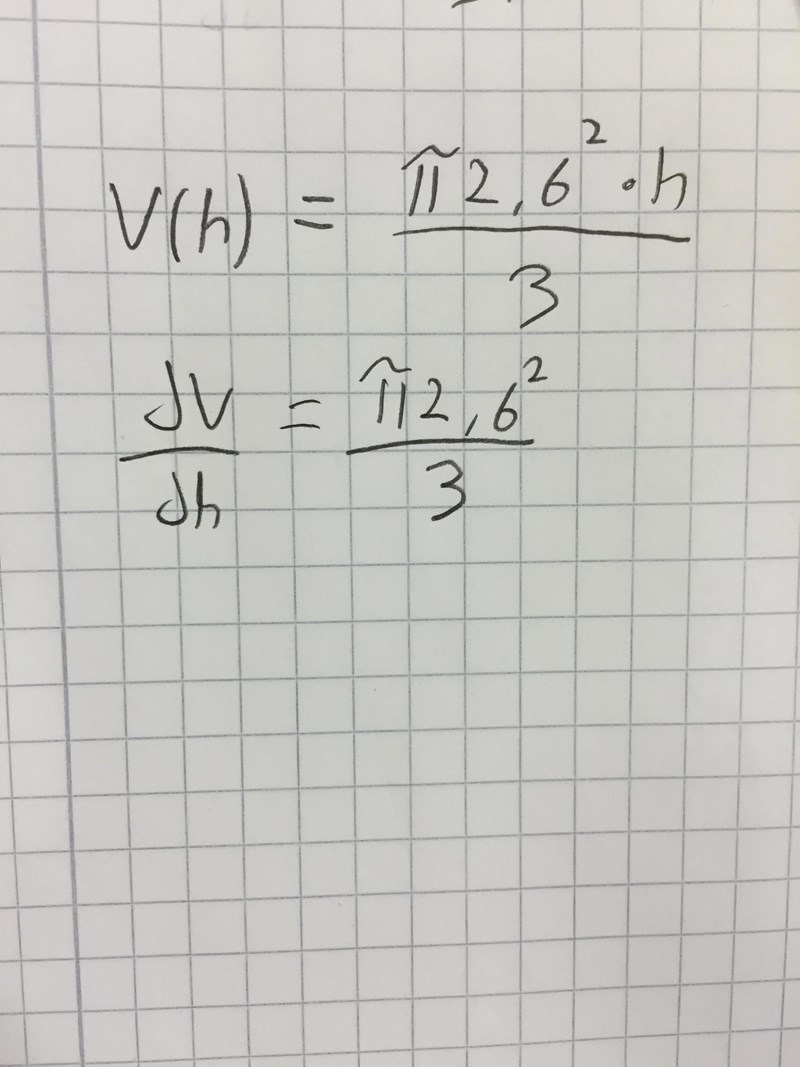 V(h) = π2,6² · h / 3
dV/dh = π2,6² / 3